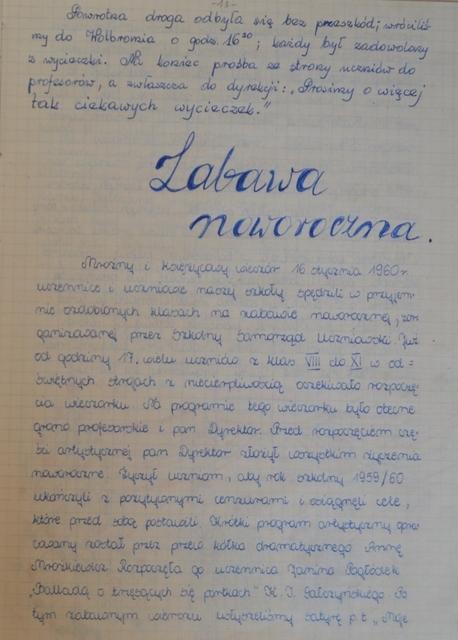 -13-
Powrotna droga odbyła się bez przeszkód; wróciliś=
my do Wolbromia o godz. 16²⁰; każdy był zadowolony
z wycieczki. Na koniec prośba ze strony uczniów do
profesorów, a zwłaszcza do dyrekcji: „Prosimy o więcej
tak ciekawych wycieczek."
Zabawa
noworoczna.
Mroźny i księżycowy wieczór 16 stycznia 1960 r.
uczennice i uczniowie naszej szkoły spędzili w przyjem
nie ozdobionych klasach na zabawie noworocznej, zor
ganizowanej przez Szkolny Samorząd Uczniowski. Już
od godziny 17. wielu uczniów z klas VIII do XI w od=
świętnych strojach z niecierpliwością oczekiwało rozpoczę
cia wieczorku. Na programie tego wieczorku było obecne
grono profesorskie i pan Dyrektor. Przed rozpoczęciem czę
ści artystycznej pan Dyrektor złożył wszystkim życzenia
noworoczne. Życzył uczniom, aby rok szkolny 1959/60
ukończyli z pozytywnymi cenzurami i osiągnęli cele,
które przed sobą postawili. Krótki program artystyczny opra
cowany został przez
kółka dramatycznego Annę
Mroszkiewicz. Rozpoczęła go uczennica Janina
„Balladą o trzęsących się portkach" K. I. Gałczyńskiego. Po
tym zabawnym wierszu usłyszeliśmy satyrę p.t. „Moje